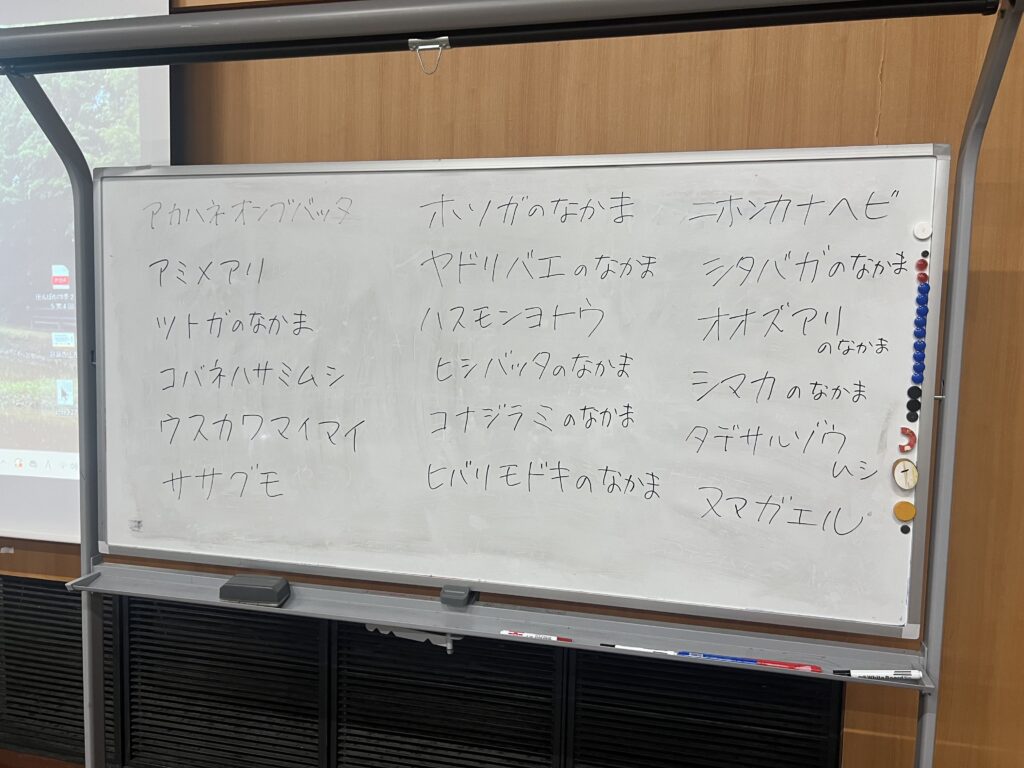 アカハネオンブバッタ
アミメアリ
ツトガのなかま
コバネハサミムシ
ウスカワマイマイ
ササグモ
ホソガのなかま
ヤドリバエのなかま
ハスモンヨトウ
ヒシバッタのなかま
コナジラミのなかま
ヒバリモドキのなかま
ニホンカナヘビ
シタバガのなかま
オオズアリ
のなかま
シマカのなかま
タデサルゾウ
ムシ
ヌマガエル